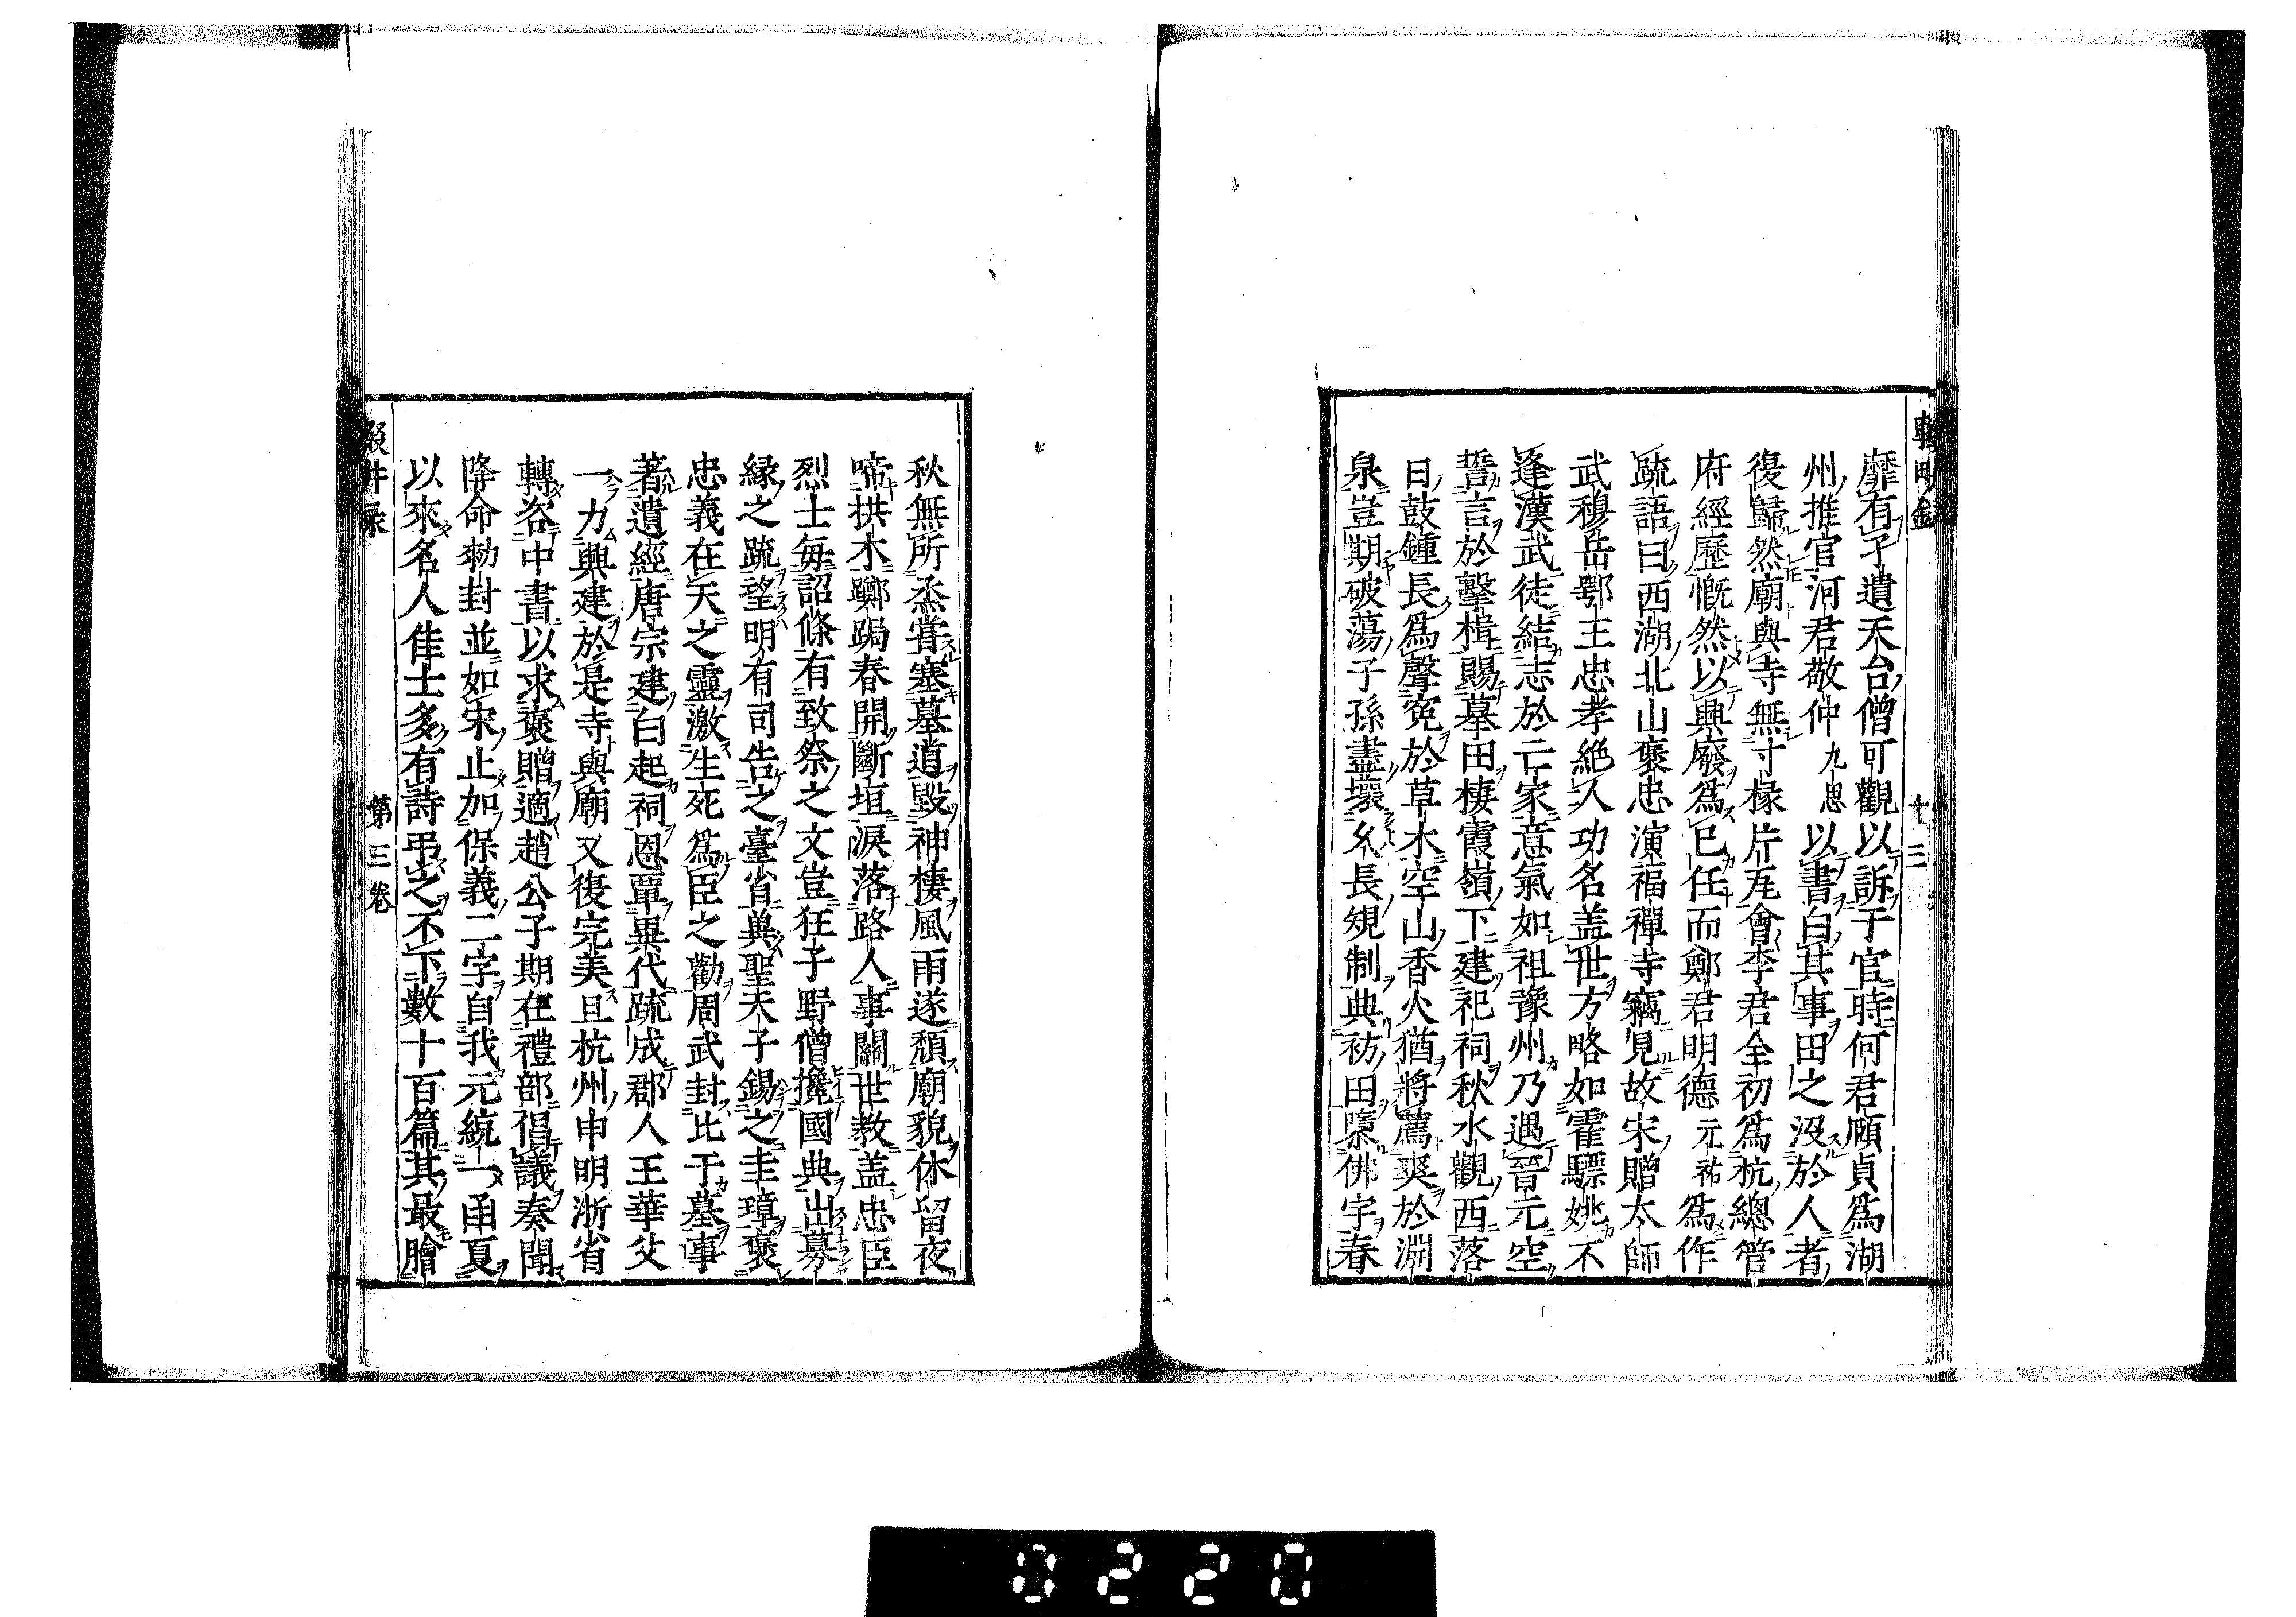 靡有孑遺禾台僧可觀以訴于官時何君頤貞爲湖
州推官河君敬仲九思以書白其事田之没於人者
復歸然廟與寺無寸椽片瓦會李君全初爲杭總管
府經歷慨然以興廢爲已任而鄭君明德元祐爲作
疏語曰西湖北山褒忠演福禪寺竊見故宋贈太師
武穆岳鄂王忠孝絶人功名盖世方略如霍驃姚不
逢漢武徒結志於亡家意氣如祖豫州乃遇晉元空
誓言於擊楫賜墓田棲霞嶺下建祀祠秋水觀西落
日鼓鍾長爲聲寃於草木空山香火猶將薦爽於淵
泉豈期破蕩子孫盡壞久長䂓制典祊田隳佛宇春
秋無所烝嘗塞墓道毀神棲風雨遂頹廟貌休留夜
啼拱木躑躅春開斷垣淚落路人事關世教盖忠臣
烈士毎詔條有致祭之文豈狂子野僧攙國典出募
縁之疏望明有司告之臺省典聖天子錫之圭璋褒
忠義在天之靈激生死爲臣之勸周武封比干墓事
著遺經唐宗建白起祠恩覃異代疏成郡人王華父
一力興建於是寺與廟又復完美且杭州申明浙省
轉咨中書以求褒贈適趙公子期在禮部倡議奏聞
降命勑封並如宋止加保義二字自我元統一函夏
以來名人佳士多有詩弔之不下數十百篇其最膾
十三
第三卷
0220